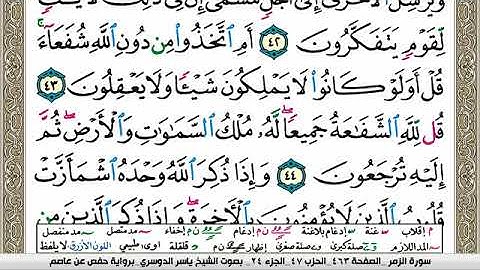 ويرسل الأخرى إلى أجل مسمى إن في ذلك
لِّقَوْمٍ يَتَفَكَّرُونَ ٤٢ أَمِ اتَّخَذُوا مِن دُونِ اللَّهِ شُفَعَاءَ
قُلْ أَوَلَوْ كَانُوا لَا يَمْلِكُونَ شَيْئًا وَلَا يَعْقِلُونَ ٤٣
قُل لِّلَّهِ الشَّفَاعَةُ جَمِيعًا لَّهُ مُلْكُ السَّمَاوَاتِ وَالْأَرْضِ ثُمَّ
إِلَيْهِ تُرْجَعُونَ ٤٤ وَإِذَا ذُكِرَ اللَّهُ وَحْدَهُ اشْمَأَزَّتْ
قُلُوبُ الَّذِينَ لَا يُؤْمِنُونَ بِالْآخِرَةِ وَإِذَا ذُكِرَ الَّذِينَ مِن
م إقلاب غنة إدغام بلاغنة ن م إدغام ن م إخفاء مد متصل مد منفصل
المد اللازم صلة كبرى صلة صغرى إظهار ن م قلقلة اوى طبيعي اللون الأزرق لا يلفظ
سورة الزمر . الصفحة ٤٦٣ . الحزب ٤٧ . الجزء ٢٤ . بصوت الشيخ ياسر الدوسري . برواية حفص عن عاصم